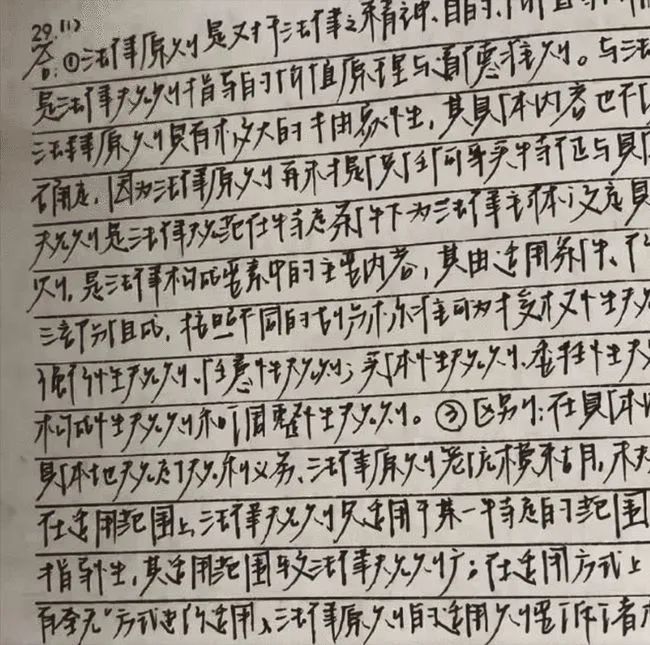 29.(1)
答:①法律原则是对于法律之精神、目的、价值等
是法律规则指导的价值原理与道德准则。与法
法律原则具有较大的抽象性,其具体内容也不
确定,因为法律原则再
规则是法律规范在特定条件下为法律主体设定具
则,是法律构成要素中的主要内容,其由适用条件、
三部分组成,按照不同的划分标准可为授权性规
强行性规则、任意性规则;委任性规
构成性规则和调整性规则。③区别:在具体
具体地规定了权利义务、法律原则笼统模糊
在适用范围上法律规则只适用于某一特定的范围
指导性,其适用范围较法律规则广;在适用方式上
有全无”方式进行适用、法律原则的适用则要